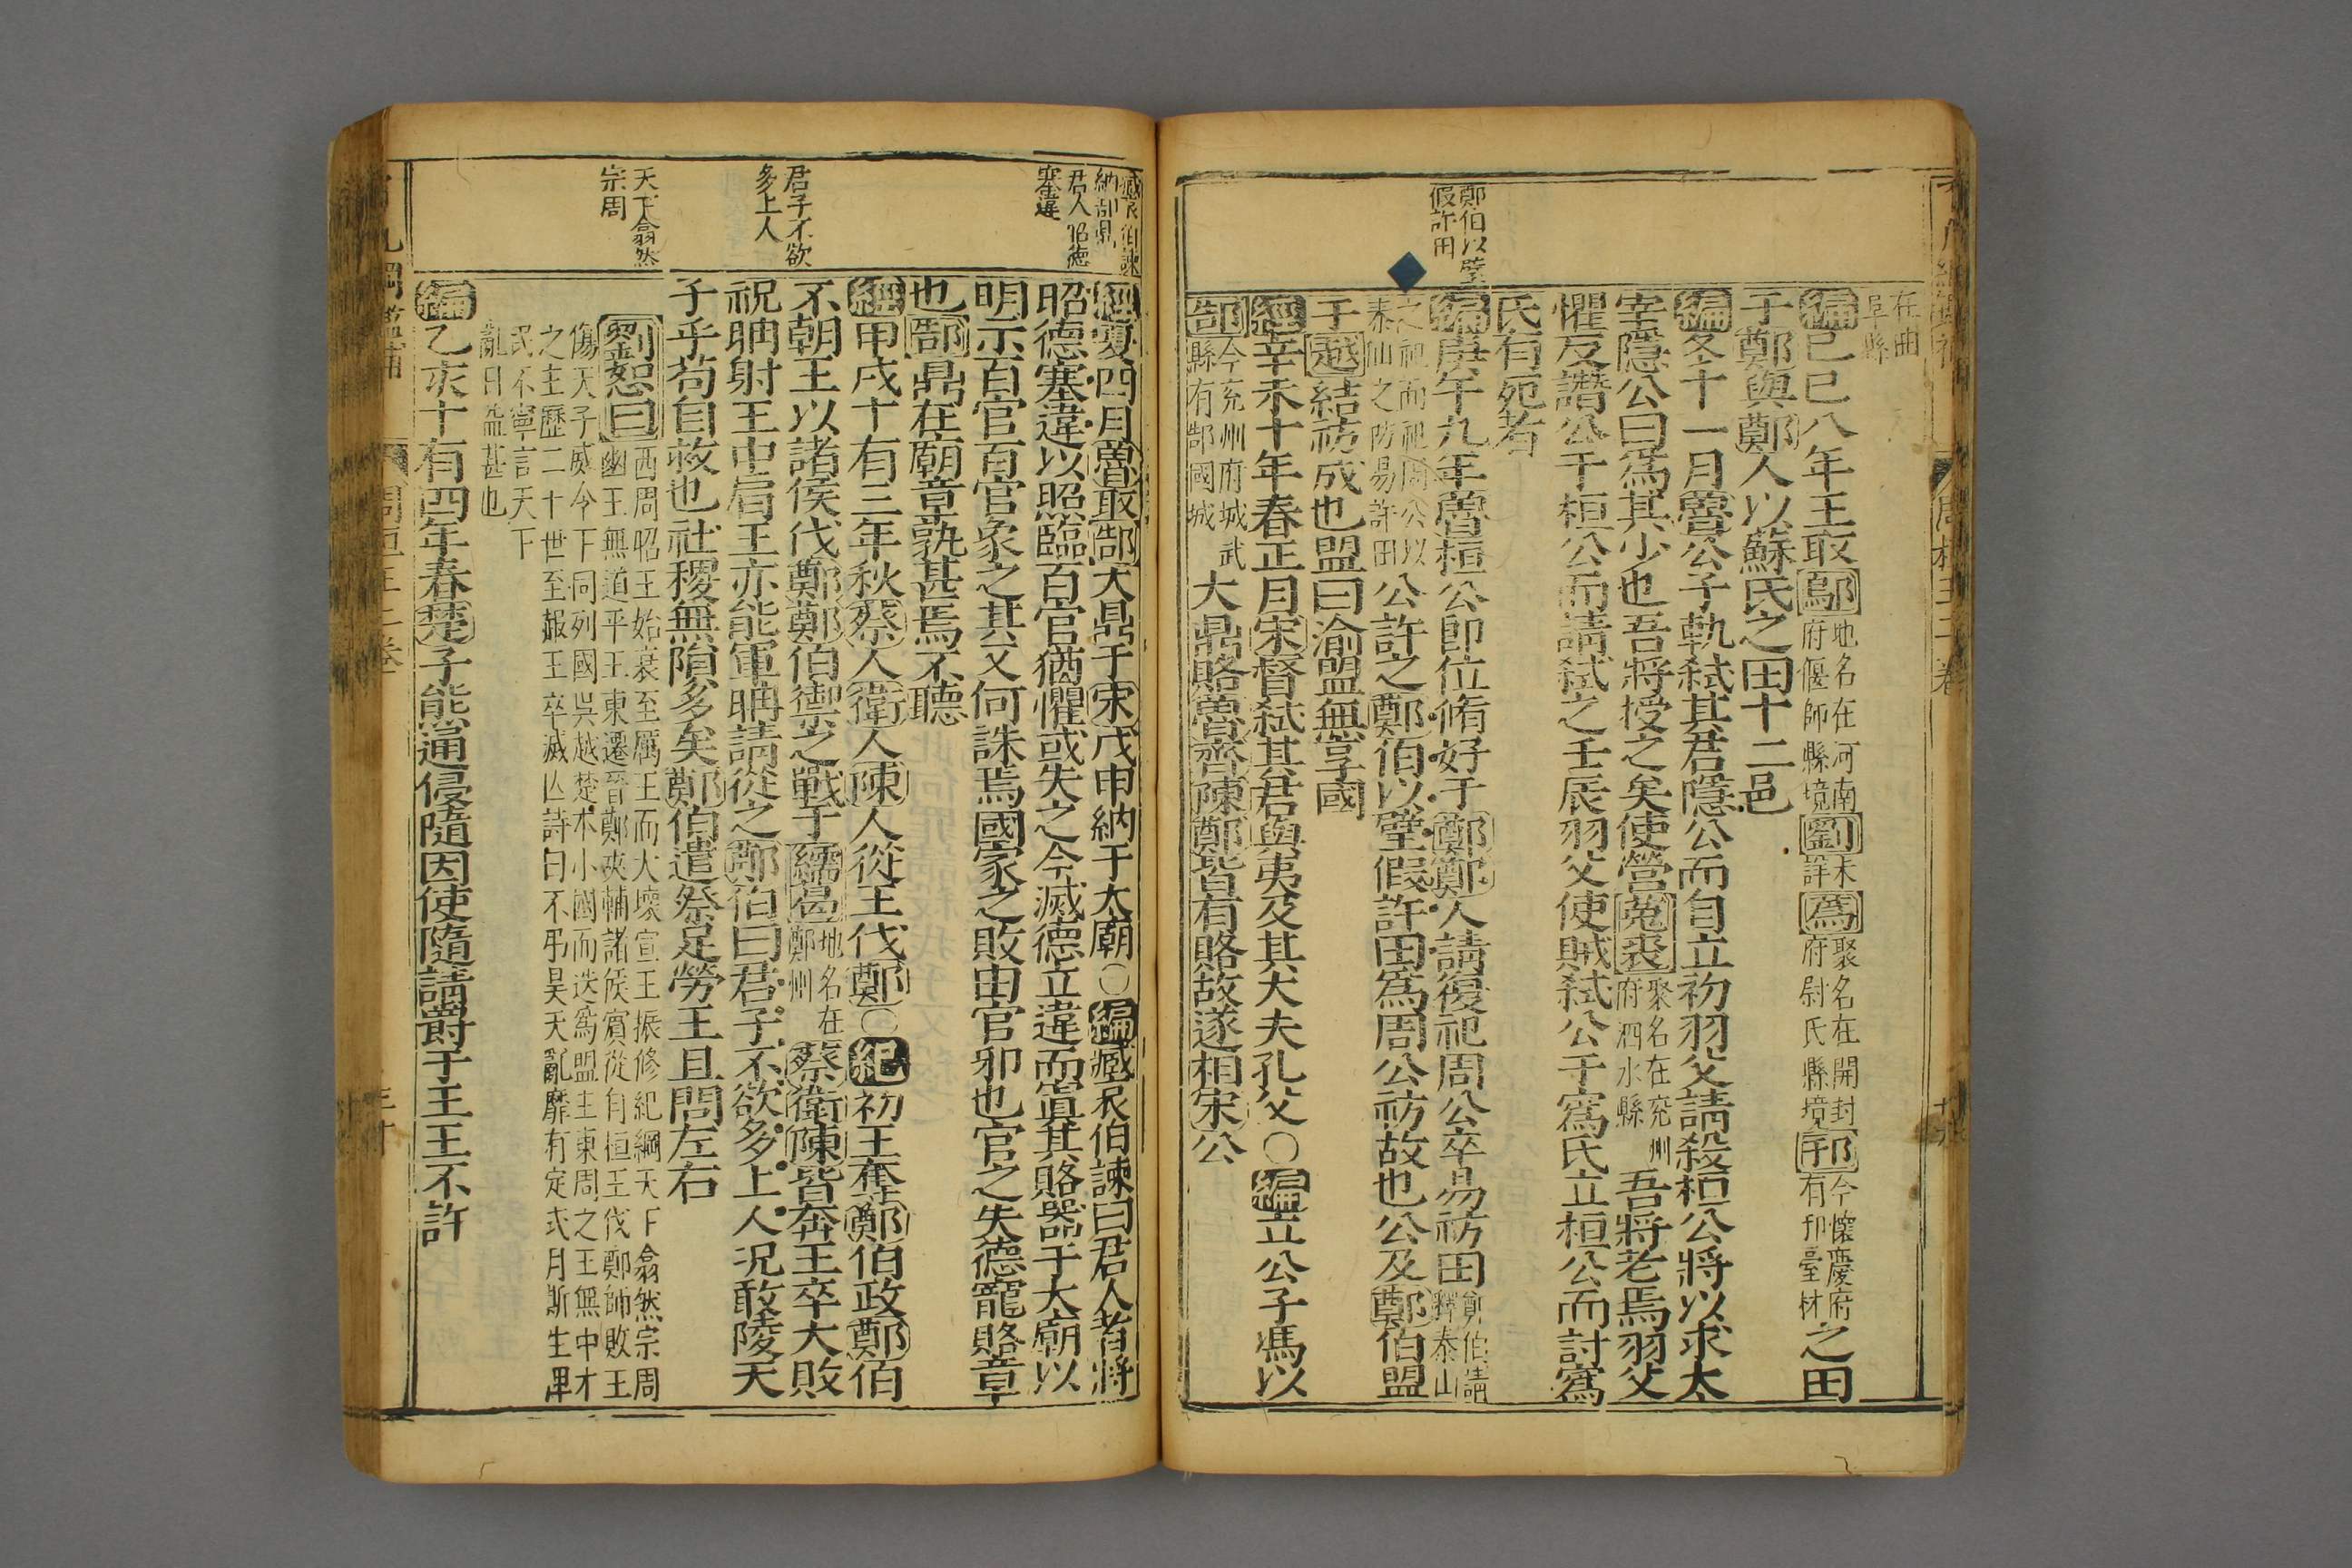 鄭伯以璧
假許田
在曲
阜縣
編己巳八年王取鄔地名在河南府偃師縣境劉未詳蔿聚名在開封府尉氏縣境邘今懷慶府有邘臺村之田
于鄭與鄭人以蘇氏之田十二邑
編冬十一月魯公子軌弑其君隱公而自立初羽父請殺桓公將以求太
宰隱公曰爲其少也吾將授之矣使營菟裘聚名在兖州府泗水縣吾將老焉羽父
懼反譖公于桓公而請弑之壬辰羽父使賊弑公于寪氏立桓公而討寪
氏有死者
編庚午九年魯桓公即位脩好于鄭鄭人請復祀周公卒易祊田鄭伯請釋泰山
之祀而祀周公以泰山之祊易許田公許之鄭伯以璧假許田爲周公祊故也公及鄭伯盟
于越結祊成也盟曰渝盟無享國
經辛未十年春正月宋督弑其君與夷及其大夫孔父○編立公子馮以
郜今兖州府城武縣有郜國城大鼎賂魯齊陳鄭皆有賂故遂相宋公
臧哀伯諫
納郜鼎
君人昭德
塞違
君子不欲
多上人
天下翕然
宗周
經夏四月魯取郜大鼎于宋戊申納于太廟○編臧哀伯諫曰君人者將
昭德塞違以照臨百官猶懼或失之今滅德立違而寘其賂器于大廟以
明示百官百官象之其又何誅焉國家之敗由官邪也官之失德寵賂章
也郜鼎在廟章孰甚焉不聽
經甲戌十有三年秋蔡人衛人陳人從王伐鄭○紀初王奪鄭伯政鄭伯
不朝王以諸侯伐鄭鄭伯禦之戰于繻葛地名在鄭州蔡衛陳皆奔王卒大敗
祝聃射王中肩王亦能軍聃請從之鄭伯曰君子不欲多上人况敢陵天
子乎苟自救也社稷無隕多矣鄭伯遣祭足勞王且問左右
劉恕曰西周昭王始衰至厲王而大壞宣王振修紀綱天下翕然宗周
幽王無道平王東遷晉鄭夾輔諸侯賓從自桓王伐鄭師敗王
傷天子威令下同列國吳越楚本小國而迭爲盟主東周之王無中才
之主歷二十世至赧王卒滅亾詩曰不弔昊天亂靡有定式月斯生俾
民不寧言天下
亂日益甚也
編乙亥十有四年春楚子熊通侵隨因使隨請爵于王王不許